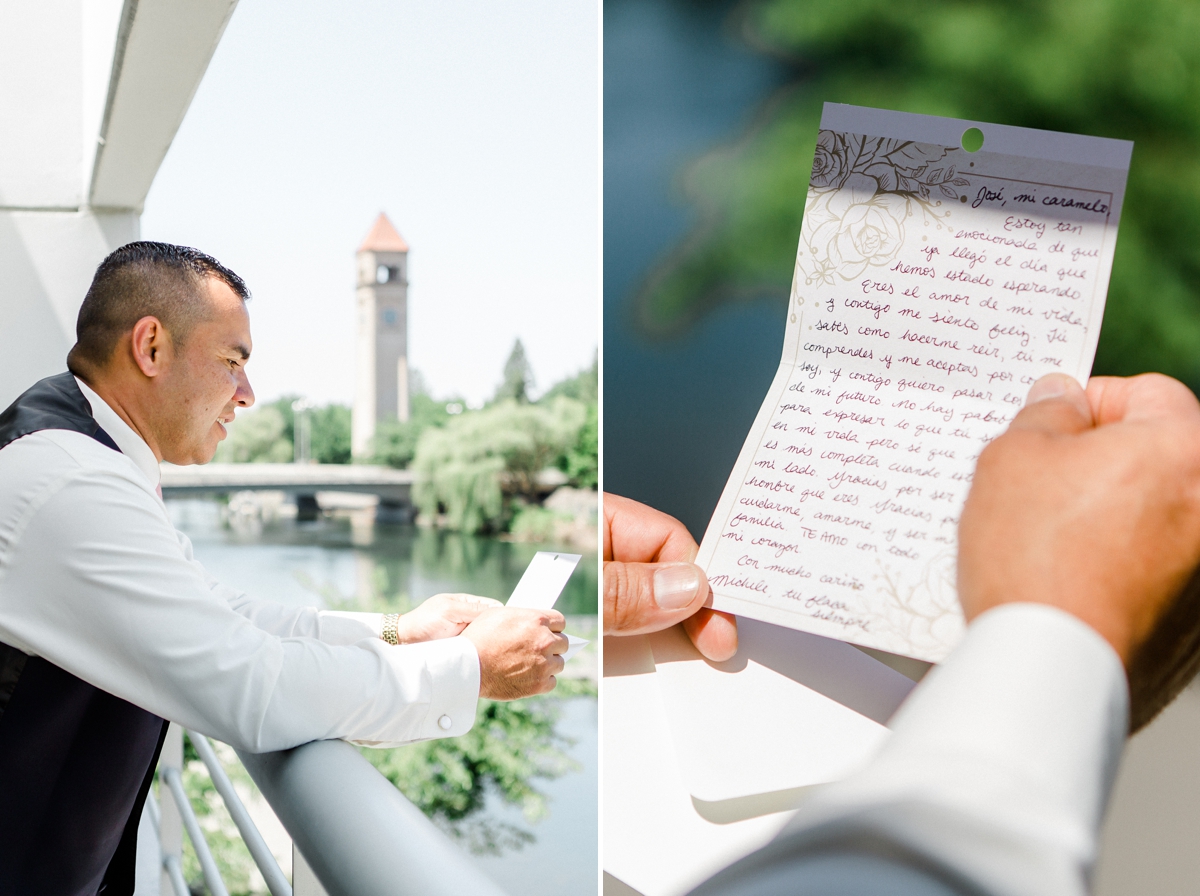 José, mi caramelo,
Estoy tan
emocionada de que
ya llegó el día que
hemos estado esperando.
Eres el amor de mi vida,
y contigo me siento feliz. Tú
sabes como hacerme reir, tú me
comprendes y me aceptas por co
soy, y contigo quiero pasar los
de mi futuro. No hay palab
para expresar lo que tú s
en mi vida pero sé que m
es más completa cuando est
mi lado. Gracias por ser
hombre que eres. Gracias p
cuidarme, amarme, y ser m
familia. TE AMO con todo
mi corazon.
Con mucho cariño
Michele, tu flaca
siempre